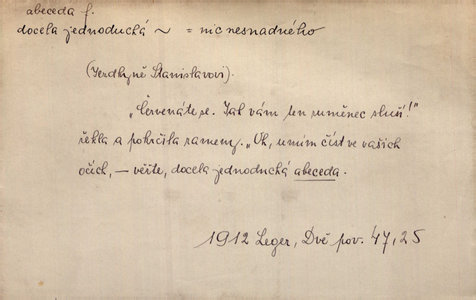 abeceda f.
docela jednoduchá ~ = nic nesnadného
(Jezdkyně Stanislavovi).
„Červenáte se. Jak vám ten ruměnec sluší!"
řekla a pokrčila rameny. „Oh, umím číst ve vašich
očích, — věřte, docela jednoduchá abeceda.
1912 Leger, Dvě pov. 47, 25